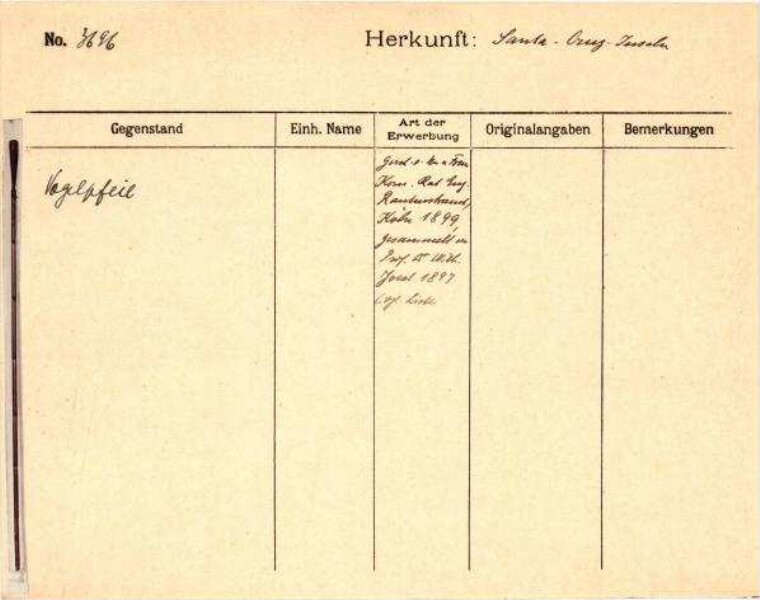 No. 3696
Herkunft: Santa-Cruz-Inseln
Gegenstand
Einh. Name
Art der Erwerbung
Originalangaben
Bemerkungen
Vogelpfeil
Gesch. v. Frau
Kom. Rat Eug.
Rautenstrauch,
Köln 1899,
gesammelt v.
Prof. Dr Wilh.
Joest 1897
(vgl. Liste